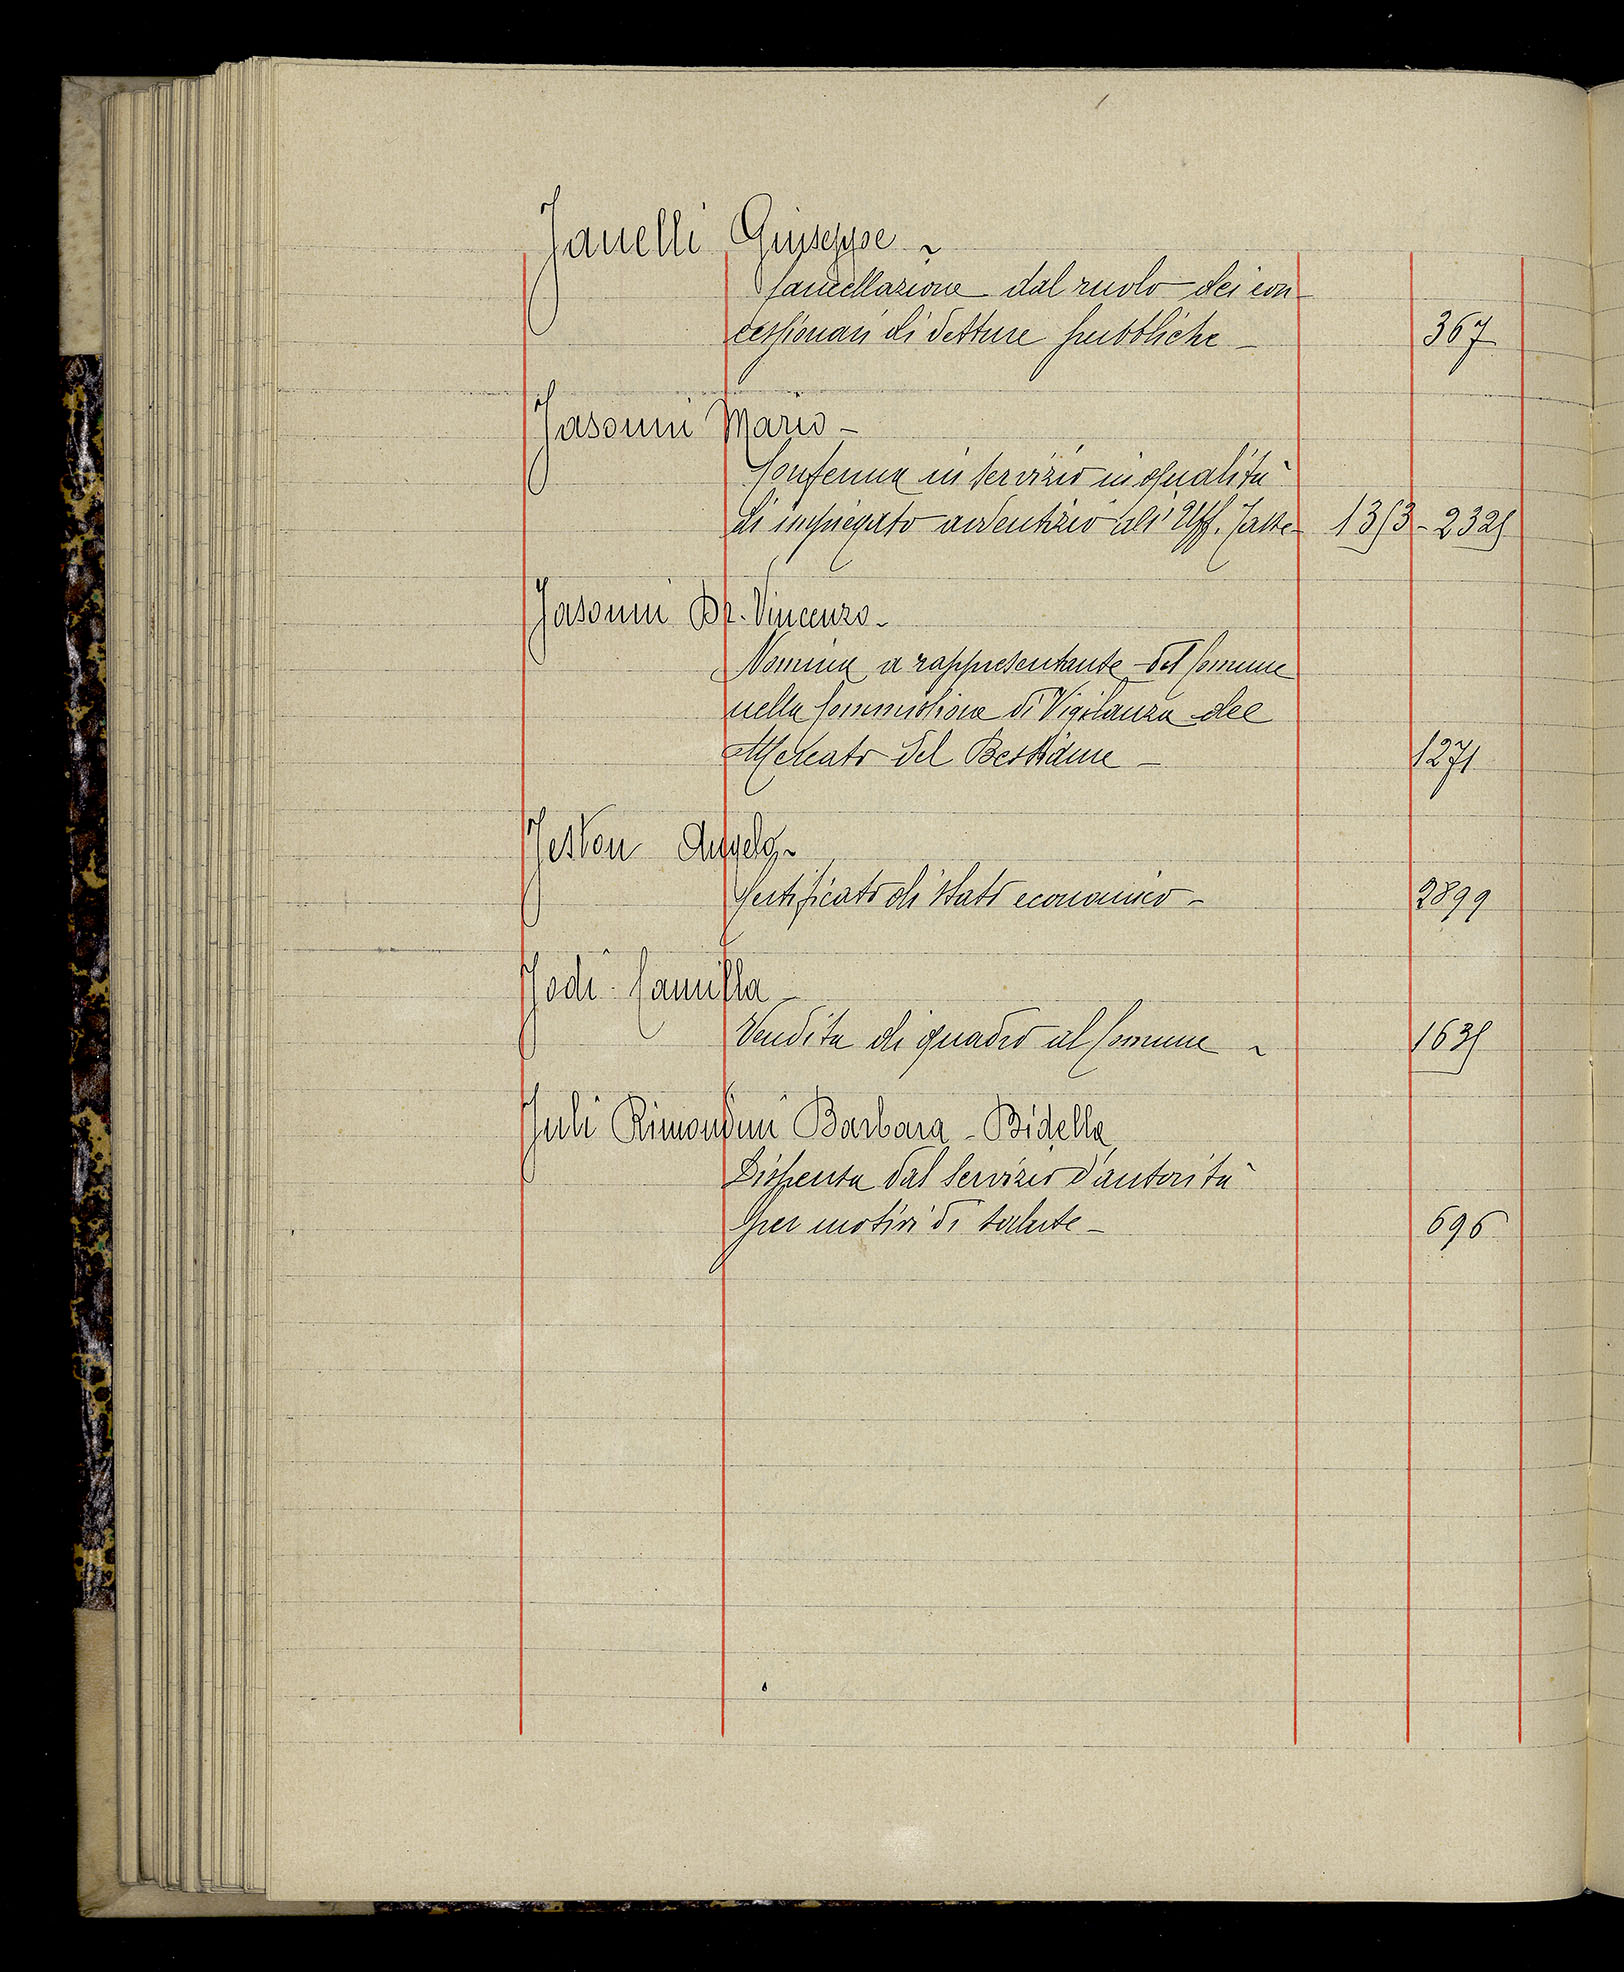 Janelli Giuseppe -
Cancellazione dal ruolo dei con-
cessionari di vetture pubbliche - 367
Jasonni Mario -
Conferma in servizio in qualità
di impiegato avventizio all' Uff. Tasse - 1353 - 2325
Jasonni Dr. Vincenzo -
Nomina a rappresentante del Comune
nella Commissione di Vigilanza del
Mercato del Bestiame - 1271
Jeston Angelo -
Certificato di stato economico - 2899
Jodi Camilla -
Vendita di quadro al Comune - 1635
Juli Rimondini Barbara - Bidella
Dispensa dal servizio d'autorità
per motivi di salute - 696